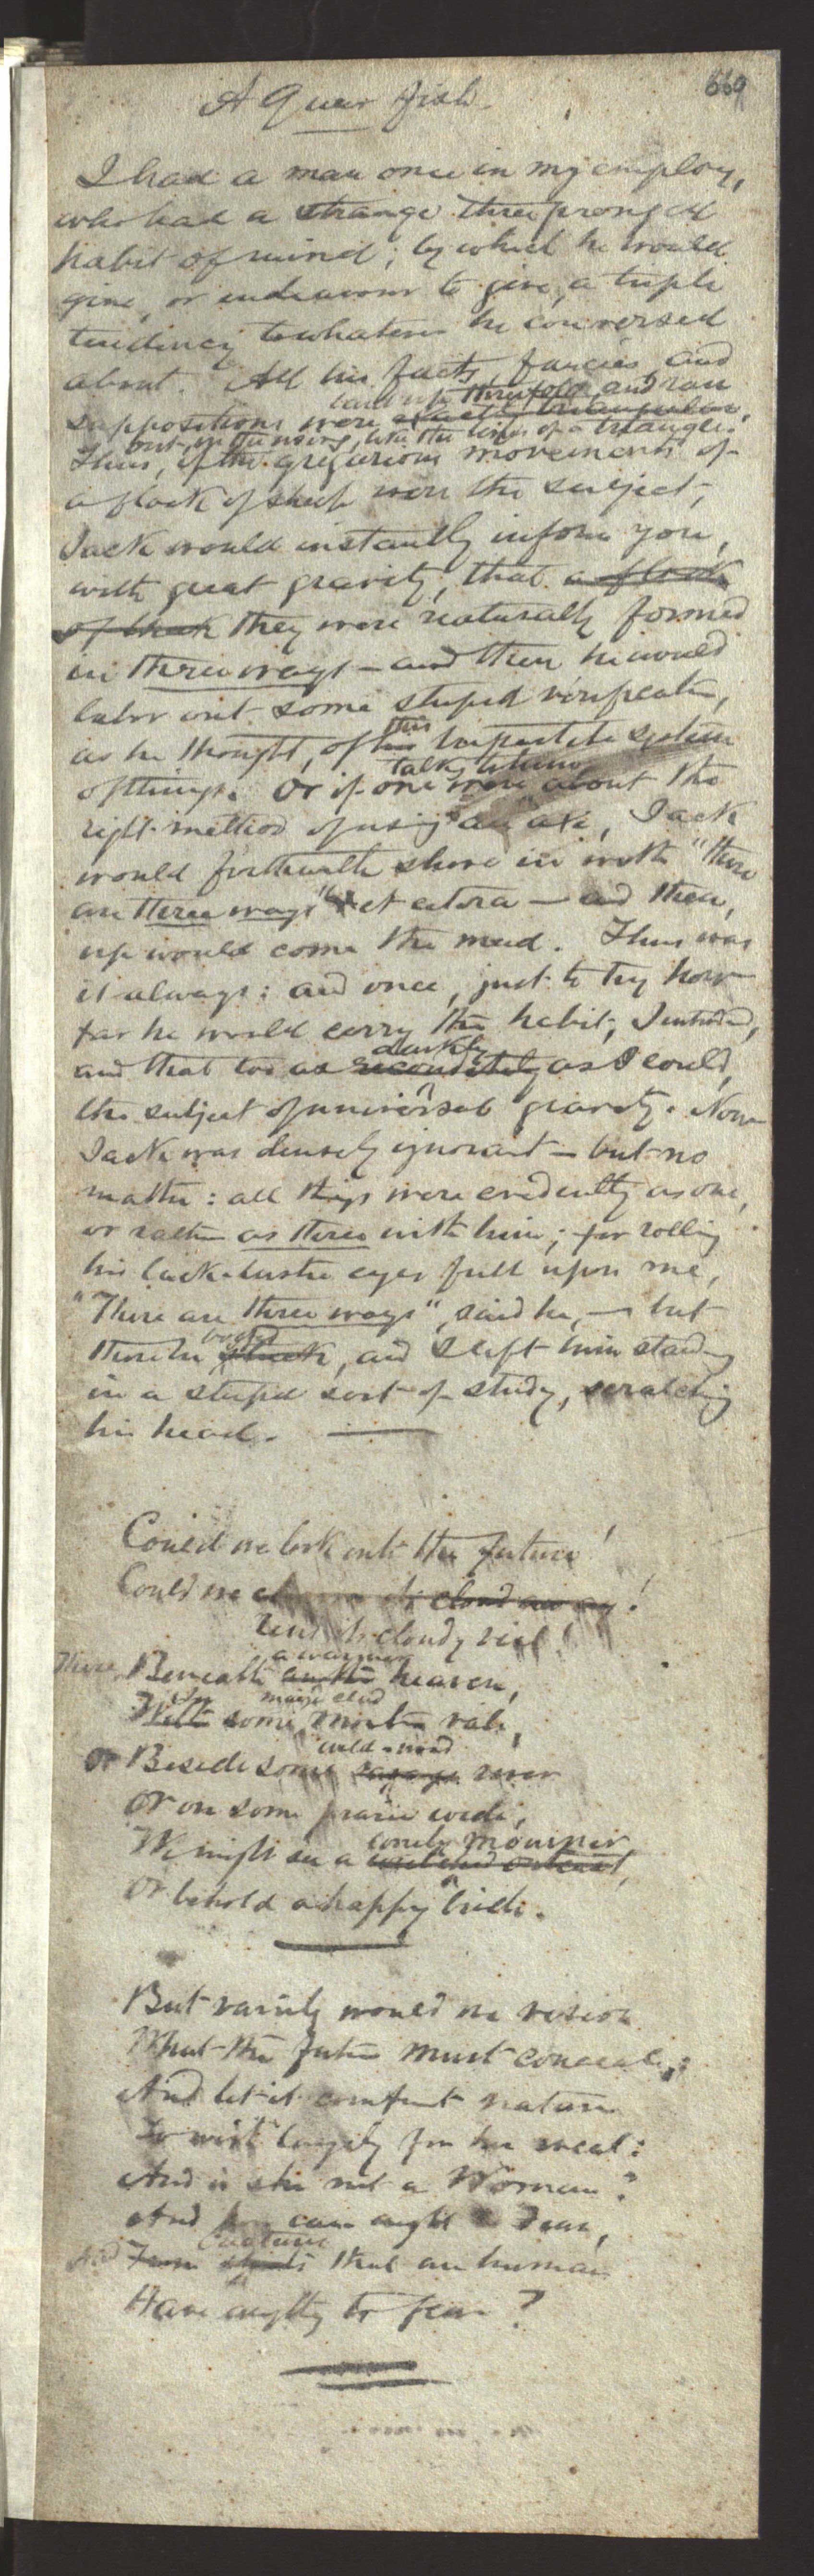 669
A Queer fish.
I had a man once in my employ,
who had a strange three pronged
habit of mind; by which he would
give, or endeavour to give, a triple
tendency to whatever he conversed
about. All his facts, fancies, and
laid up threefold, and ran
suppositions were exactly triangular.
out, in the using, like the lines of a triangle.
Thus, if the gregarious movements of
a flock of sheep were the subject,
Jack would instantly inform you,
with great gravity, that a flock
of sheep they were naturally formed
in three ways — and then he would
labor out some stupid
as he thought, of his this tripartite system
talking
of things. Or if one were about the
right method of using an axe, Jack
would forthwith shove in with "there
are three ways" et cetera — and then,
up would come the mud. Thus was
it always: and once, just to try how
far he would carry the habit, I introduced,
darkly
and that too as reconditely as I could,
the subject of universal gravity. Now
Jack was densely ignorant — but no
matter: all things were evidently as one,
or rather as three with him; for rolling
his lack-lustre eyes full upon me,
"There are three ways", said he, — but
bogged
there he stuck, and I left him standing
in a stupid sort of study, scratching
his head.
Could we look into the future!
Could we its cloud away!
Rend its cloudy veil!
a warmer
There, Beneath another heaven,
In maize clad
With some vale,
wild-wood
Or Beside some savage river
Or on some prairie wide,
lonely mourner
We might see a wretched outcast,
Or behold a happy bride.
But vainly would we vision
What the future must conceal;
And let it comfort nature
To wish longingly for her weal:
And is she not a Woman?
And how can aught Dear,
creature
And From that are human
Have aught to fear?